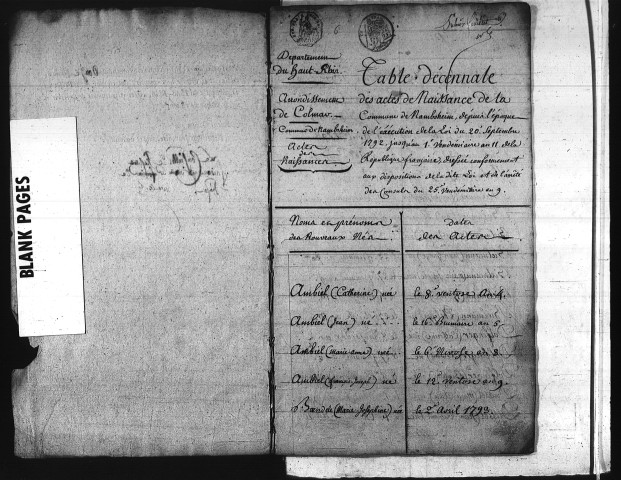 BLANK PAGES
Departement
du haut Rhin
Arrondissement
de Colmar
Commune de Rambsheim
Actes
de
Naissances
Table décennale
des actes de Naissance de la
Commune de Rambsheim, depuis l'époque
de l'exécution de la loi du 20. Septembre
1792. jusqu'au 1er Vendemiaire an 11 de la
République française, dressée conformement
aux dispositions de la dite Loi et de l'arrêté
des Consuls du 25e Vendemiaire an 9.
Noms et prénoms
des Nouveaux Nés
dates
des Actes
Ambiel (Catherine) née
le 8e ventose an 4.
Ambiel (Jean) né
le 16e brumaire an 5
Ambiel (Marie anne) née
le 6e Nivose an 8
Ambiel (françois Joseph) né
le 12e Ventose an 9
(Marie Josephine) née
le 2e Avril 1793